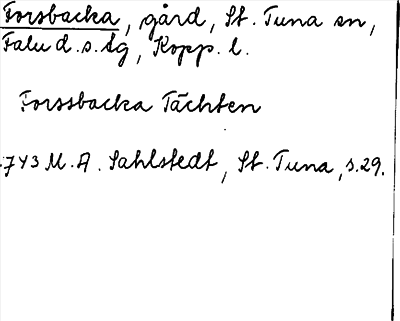 Forsbacka, gård, St. Tuna sn,
Falu d.s.tg, Kopp. l.
Forssbacka Tächten
1743 M.A. Sahlstedt, St. Tuna, s.29.